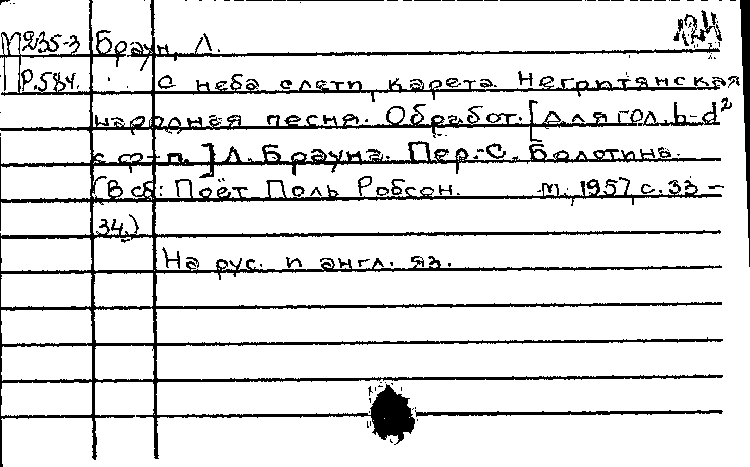 М235-3 Браун, Л.
Р.584. С неба слети, карета. Негритянская
народная песня. Обработ. [для гол. b-d²
с ф-п.] Л. Брауна. Пер. С. Болотина.
(В сб: Поёт Поль Робсон. М., 1957, с. 33-
34.)
На рус. и англ. яз.